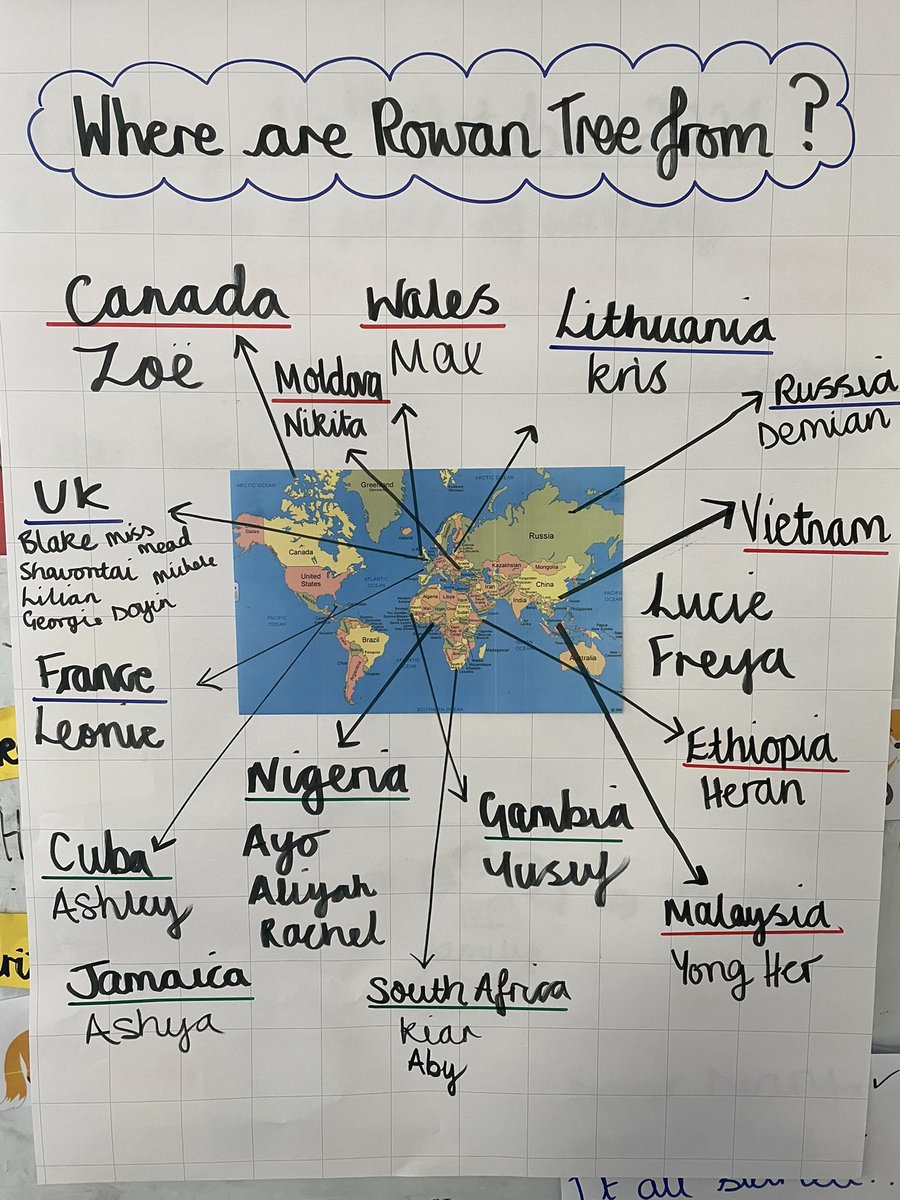 Where are Rowan Tree from?
Canada
Zoë
Wales
Max
Lithuania
Kris
Moldova
Nikita
Russia
Demian
UK
Blake Miss Mead
Shavontai Michele
Lilian
Georgie Doyin
Vietnam
Lucie
Freya
France
Leonie
Ethiopia
Heran
Nigeria
Ayo
Aliyah
Rachel
Gambia
Yusuf
Cuba
Ashley
Malaysia
Yong Her
Jamaica
Ashya
South Africa
Kian
Aby
ARCTIC OCEAN
ARCTIC OCEAN
Greenland
Canada
Russia
United States
ATLANTIC OCEAN
Kazakhstan
Mongolia
China
Iran
India
Algeria
Libya
PACIFIC OCEAN
Brazil
Madagascar
Australia
SOUTHERN OCEAN
It all